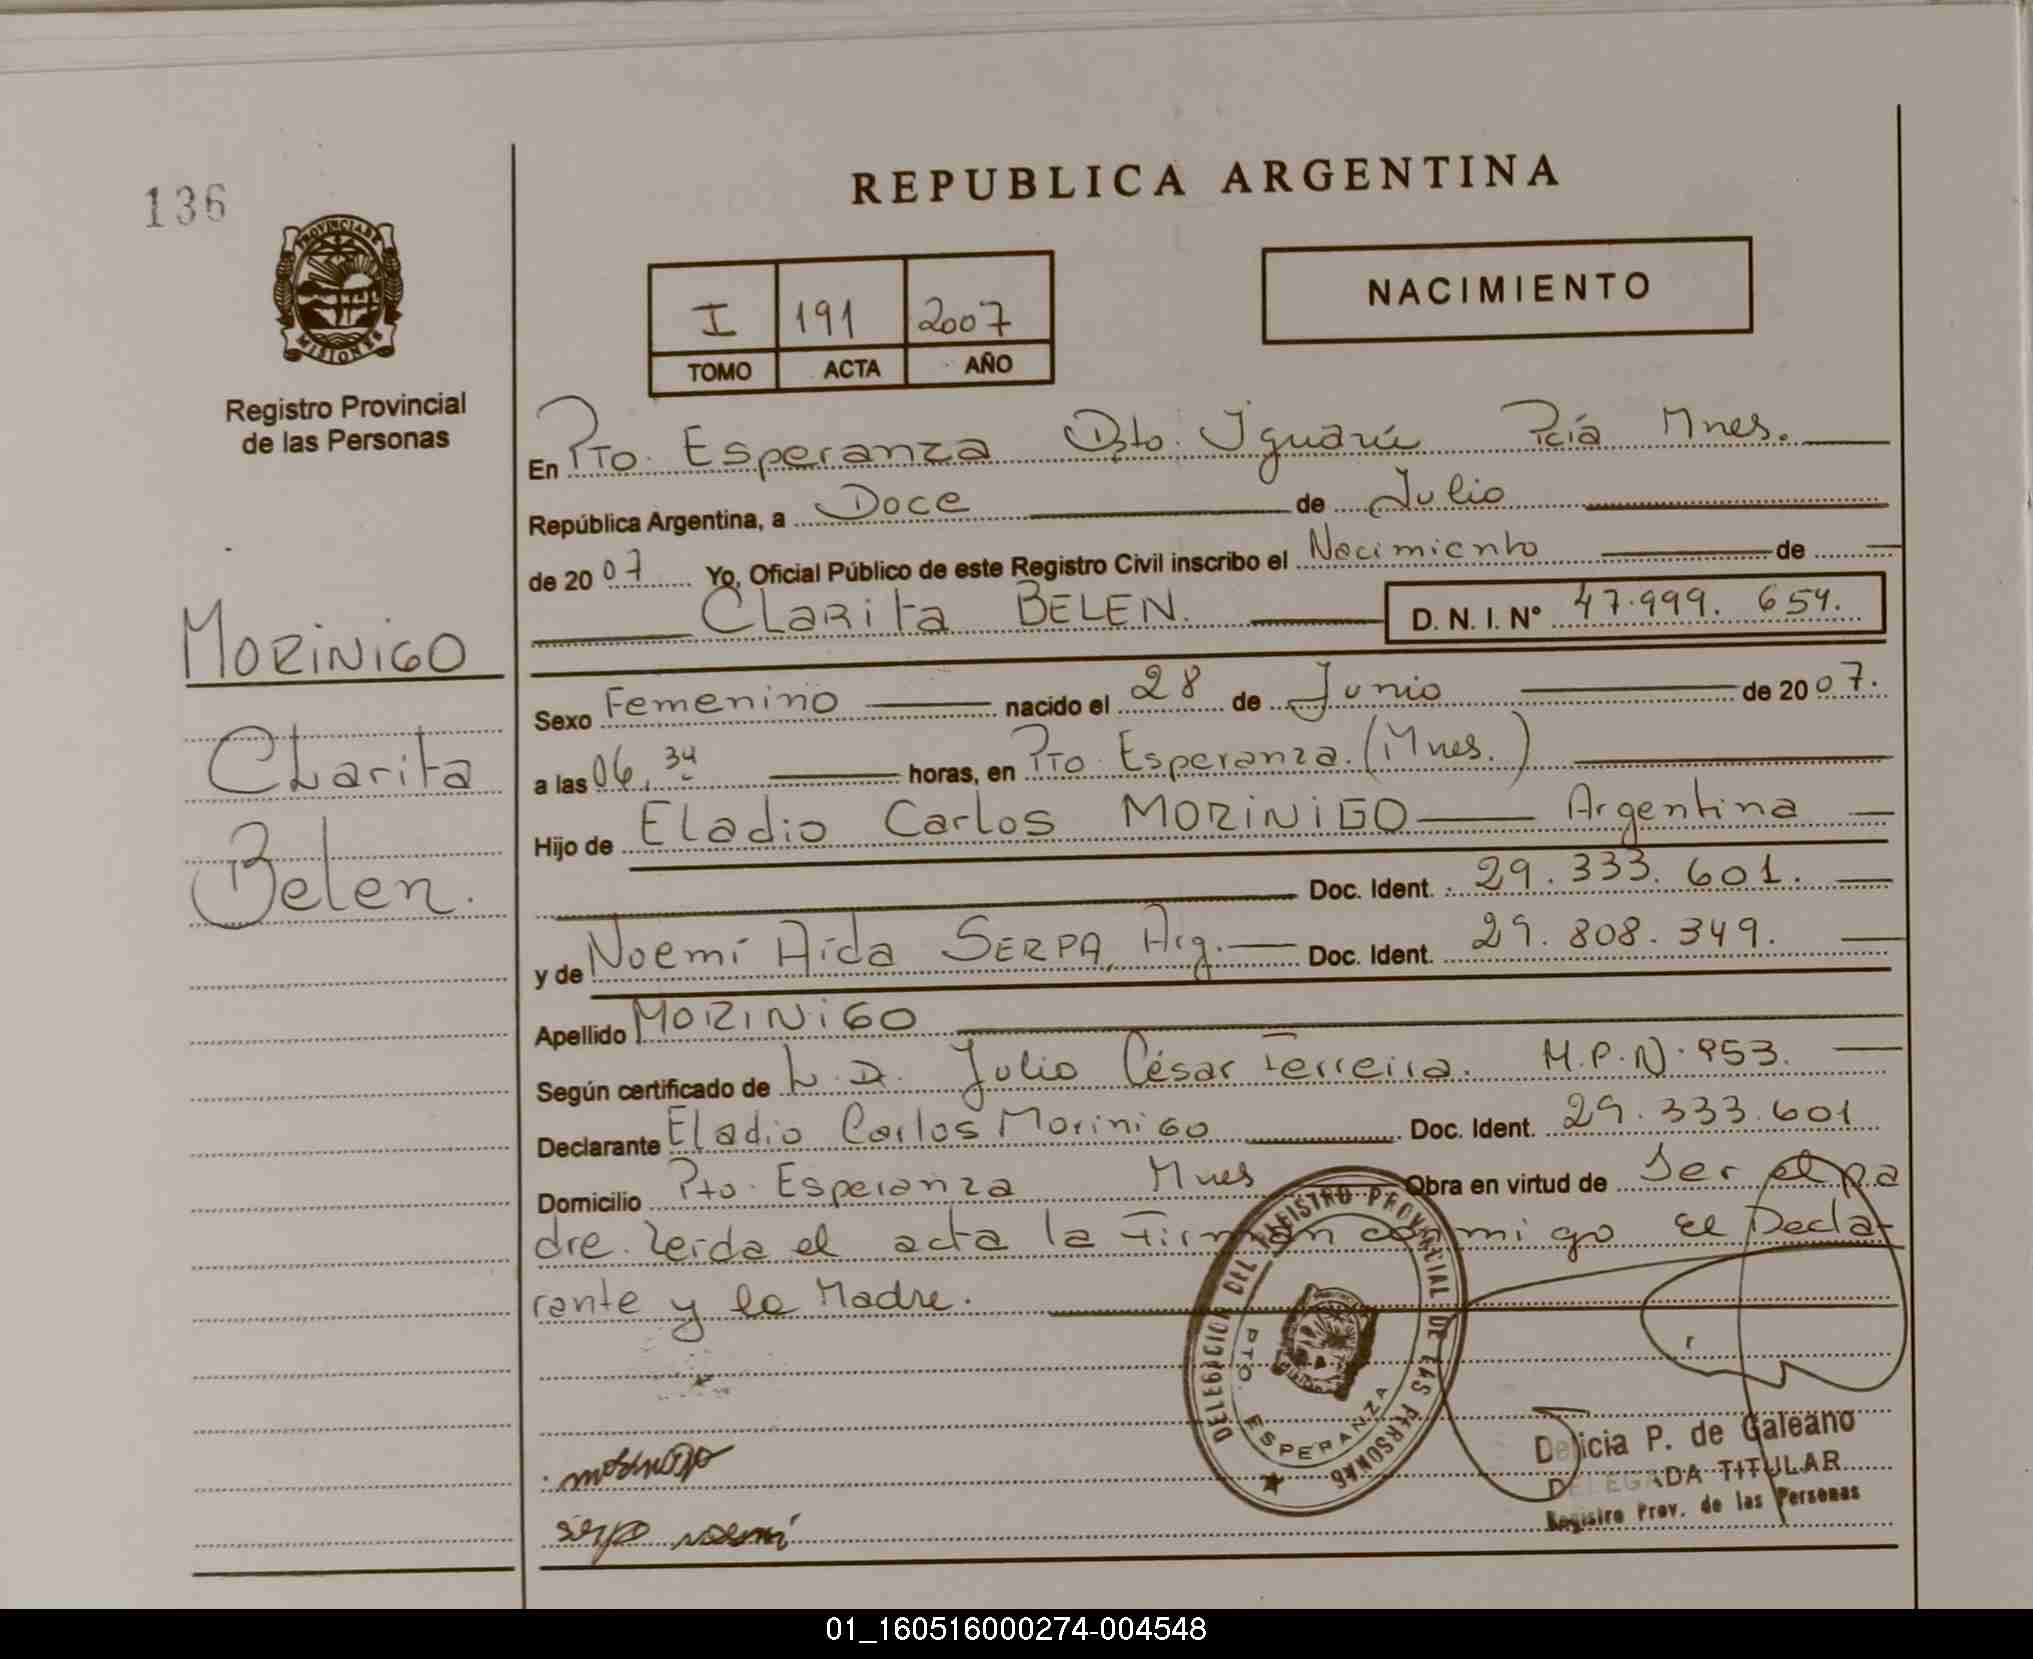 136
REPUBLICA ARGENTINA
PROVINCIA DE MISIONES
Registro Provincial
de las Personas
I 191 2007
TOMO ACTA AÑO
NACIMIENTO
En Pto. Esperanza Dpto. Iguazú Pcia Mnes.
República Argentina, a Doce de Julio
de 2007 Yo, Oficial Público de este Registro Civil inscribo el Nacimiento de
Clarita BELEN. D. N. I. Nº 47.999. 654.
MORINIGO
Clarita
Belen.
Sexo Femenino nacido el 28 de Junio de 2007.
a las 06,34 horas, en Pto Esperanza. (Mnes.)
Hijo de Eladio Carlos MORINIGO Argentina
Doc. Ident. 29.333.601.
y de Noemí Aída SERPA, Arg. Doc. Ident. 29.808.349.
Apellido MORINIGO
Según certificado de L.D. Julio César Ferreira. M.P.N. 953.
Declarante Eladio Carlos Morinigo Doc. Ident. 29.333.601
Domicilio Pto. Esperanza Mnes Obra en virtud de Ser el pa
dre. Leida el acta la Firman conmigo el Decla-
rante y la Madre.
DELEGACION DEL REGISTRO PROVINCIAL DE LAS PERSONAS
PTO. ESPERANZA
morinigo
serpa noemi
Delicia P. de Galeano
DELEGADA TITULAR
Registro Prov. de las Personas
01_160516000274-004548